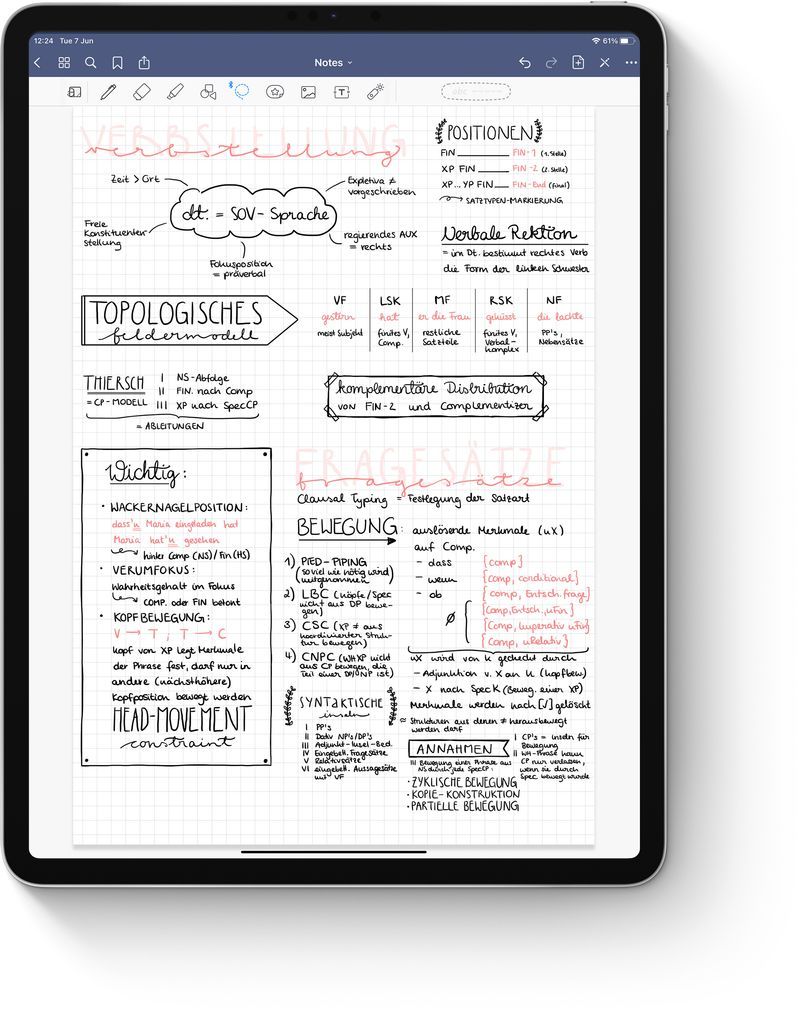 12:24 Tue 7 Jun
61%
Notes
VERBSTELLUNG
verbstellung
Zeit > Ort
Expletiva ≠
vorgeschrieben
dt. = SOV-Sprache
Freie
Konstituenten-
stellung
regierendes AUX
= rechts
Fokusposition
= präverbal
POSITIONEN
FIN FIN-1 (1. Stelle)
XP FIN FIN-2 (2. Stelle)
XP...YP FIN FIN-End (final)
SATZTYPEN-MARKIERUNG
Verbale Rektion
= im Dt. bestimmt rechtes Verb
die Form der linken Schwester
TOPOLOGISCHES
feldermodell
VF LSK MF RSK NF
gestern hat er die Frau geküsst die lachte
meist Subjekt finites V, restliche finites V, PP's,
Comp. Satzteile Verbal- Nebensätze
komplex
THIERSCH
= CP-MODELL
I NS-Abfolge
II FIN. nach Comp
III XP nach SpecCP
= ABLEITUNGEN
komplementäre Distribution
von FIN-2 und Complementizer
Wichtig:
• WACKERNAGELPOSITION:
dass'n Maria eingeladen hat
Maria hat'n gesehen
hinter Comp (NS) / Fin (HS)
• VERUMFOKUS:
Wahrheitsgehalt im Fokus
COMP. oder FIN betont
• KOPFBEWEGUNG:
V → T ; T → C
Kopf von XP legt Merkmale
der Phrase fest, darf nur in
andere (nächsthöhere)
Kopfposition bewegt werden
HEAD-MOVEMENT
constraint
FRAGESÄTZE
fragesätze
Clausal Typing = Festlegung der Satzart
BEWEGUNG:
1) PIED-PIPING
(so viel wie nötig wird
mitgenommen)
2) LBC (Köpfe/Spec
nicht aus DP bewe-
gen)
3) CSC (XP ≠ aus
koordinierter Struk-
tur bewegen)
4) CNPC (WHXP nicht
aus CP bewegen, die
Teil einer DP/NP ist)
auslösende Merkmale (uX)
auf Comp.
- dass [comp]
- wenn [comp, conditional]
- ob [comp, Entsch.frage]
ø [Comp, Entsch., uFin]
[Comp, Imperativ uFin]
[Comp, uRelativ]
uX wird von K gecheckt durch
- Adjunktion v. X an K (Kopfbew)
- X nach Spec K (Beweg. einer XP)
Merkmale werden nach [✓] gelöscht
SYNTAKTISCHE
inseln
I PP's
II Dativ NP's/DP's
III Adjunkt-Insel-Bed.
IV Eingebett. Fragesätze
V Relativsätze
VI eingebett. Aussagesätze
mit VF
≈ Strukturen aus denen ≠ herausbewegt
werden darf
ANNAHMEN
I CP's = Inseln für
Bewegung
II WH-Phrase kann
CP nur verlassen,
wenn sie durch
Spec bewegt wurde
III Bewegung einer Phrase aus
NS durch jede SpecCP:
• ZYKLISCHE BEWEGUNG
• KOPIE-KONSTRUKTION
• PARTIELLE BEWEGUNG